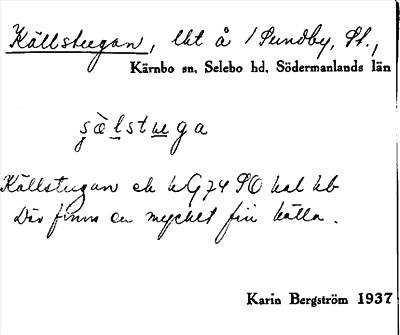 Källstugan, lht å 1 Sundby, St.,
Kärnbo sn, Selebo hd, Södermanlands län
s̨ὰl̲stu̲ga
Källstugan ek UG74 SO hal hb
Där finns en mycket fin källa.
Karin Bergström 1937